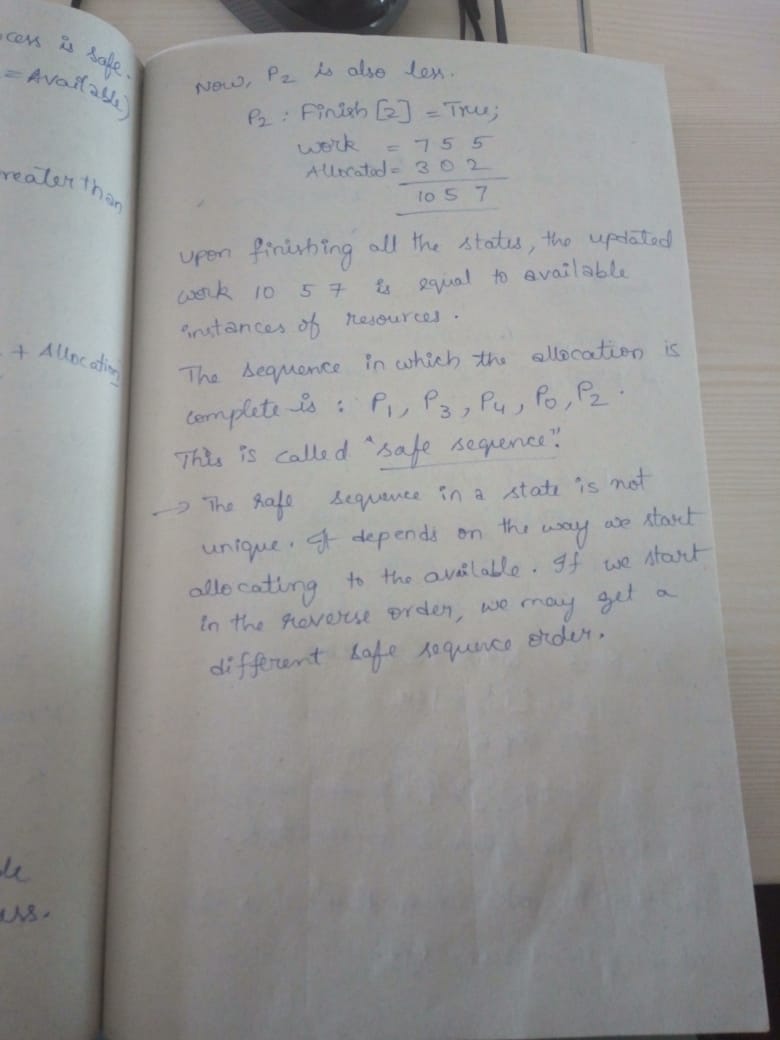 cess is safe.
= Available)
reater than
+ Allocation
ass.
Now, P2 is also less.
P2 : Finish [2] = True;
work = 7 5 5
Allocated = 3 0 2
10 5 7
upon finishing all the states, the updated
work 10 5 7 is equal to available
instances of resources.
The sequence in which the allocation is
complete is : P1, P3, P4, P0, P2.
This is called "safe sequence".
→ The safe sequence in a state is not
unique. It depends on the way we start
allocating to the available. If we start
in the reverse order, we may get a
different safe sequence order.